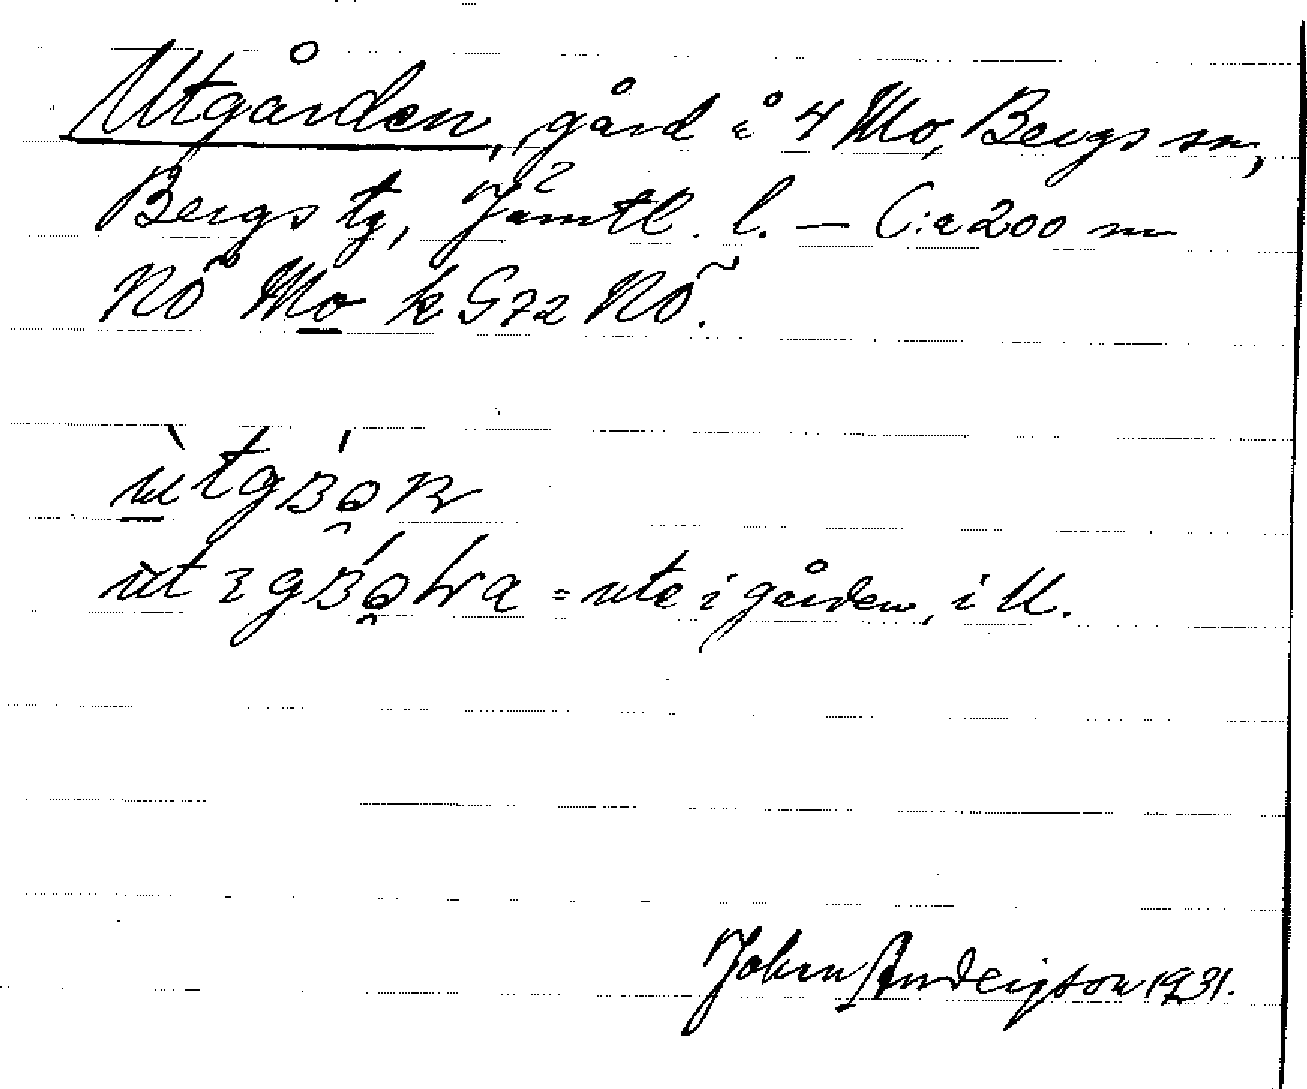 Utgården, gård i 4 Mo, Bergs sn,
Bergs tg, Jämtl. l. — C:a 200 m
NÖ Mo k G72 NÖ.
= ute i gården, i U.
Johan Anderson 1931.